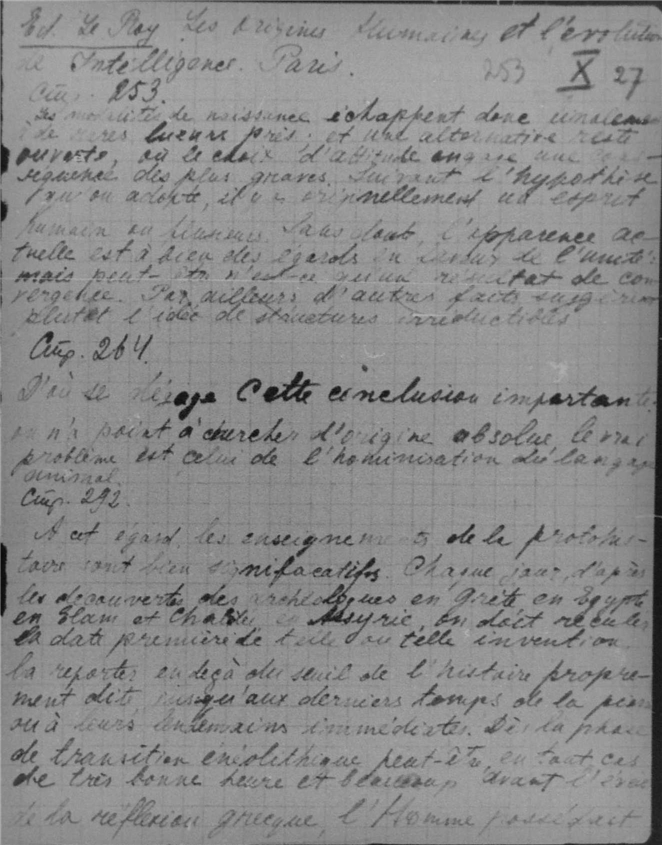 Ed. Le Roy Les Origines Humaines et l'évolution
de Intelligence. Paris. 253 X 27
Стр. 253.
Les modalités de naissance échappent donc
à de rares lueurs près: et une alternative reste
ouverte, où le choix d'attitude engage une con-
sequence des plus graves. Suivant l'hypothèse
qu'on adopte, il y a originellement un esprit
humain ou plusieurs. Sans dout, l'apparence ac-
tuelle est à bien des égards en faveur de l'unité:
mais peut-être n'est-ce qu'un résultat de con
vergence. Par ailleurs d'autres faits suggèrent
plutôt l'idée de structures irréductibles
Стр. 264.
D'où se dégage cette conclusion importante:
on n'a point à chercher d'origine absolue, le vrai
problème est celui de l'hominisation du langage
animal.
Стр. 292.
A cet égard, les enseignements de la protohis-
toire sont bien significatifs. Chaque jour, d'après
les découvertes des archéologues en Crète en Egypte
en Elam et Chaldée, en Assyrie, on doit reculer
la date première de telle ou telle invention,
la reporter en deçà du seuil de l'histoire propre-
ment dite, jusqu'aux derniers temps de la pierre
ou à leurs lendemains immédiates. Dès la phase
de transition énéolithique peut-être, en tout cas
de très bonne heure et beaucoup avant l'éveil
de la réflexion grecque, l'Homme possédait